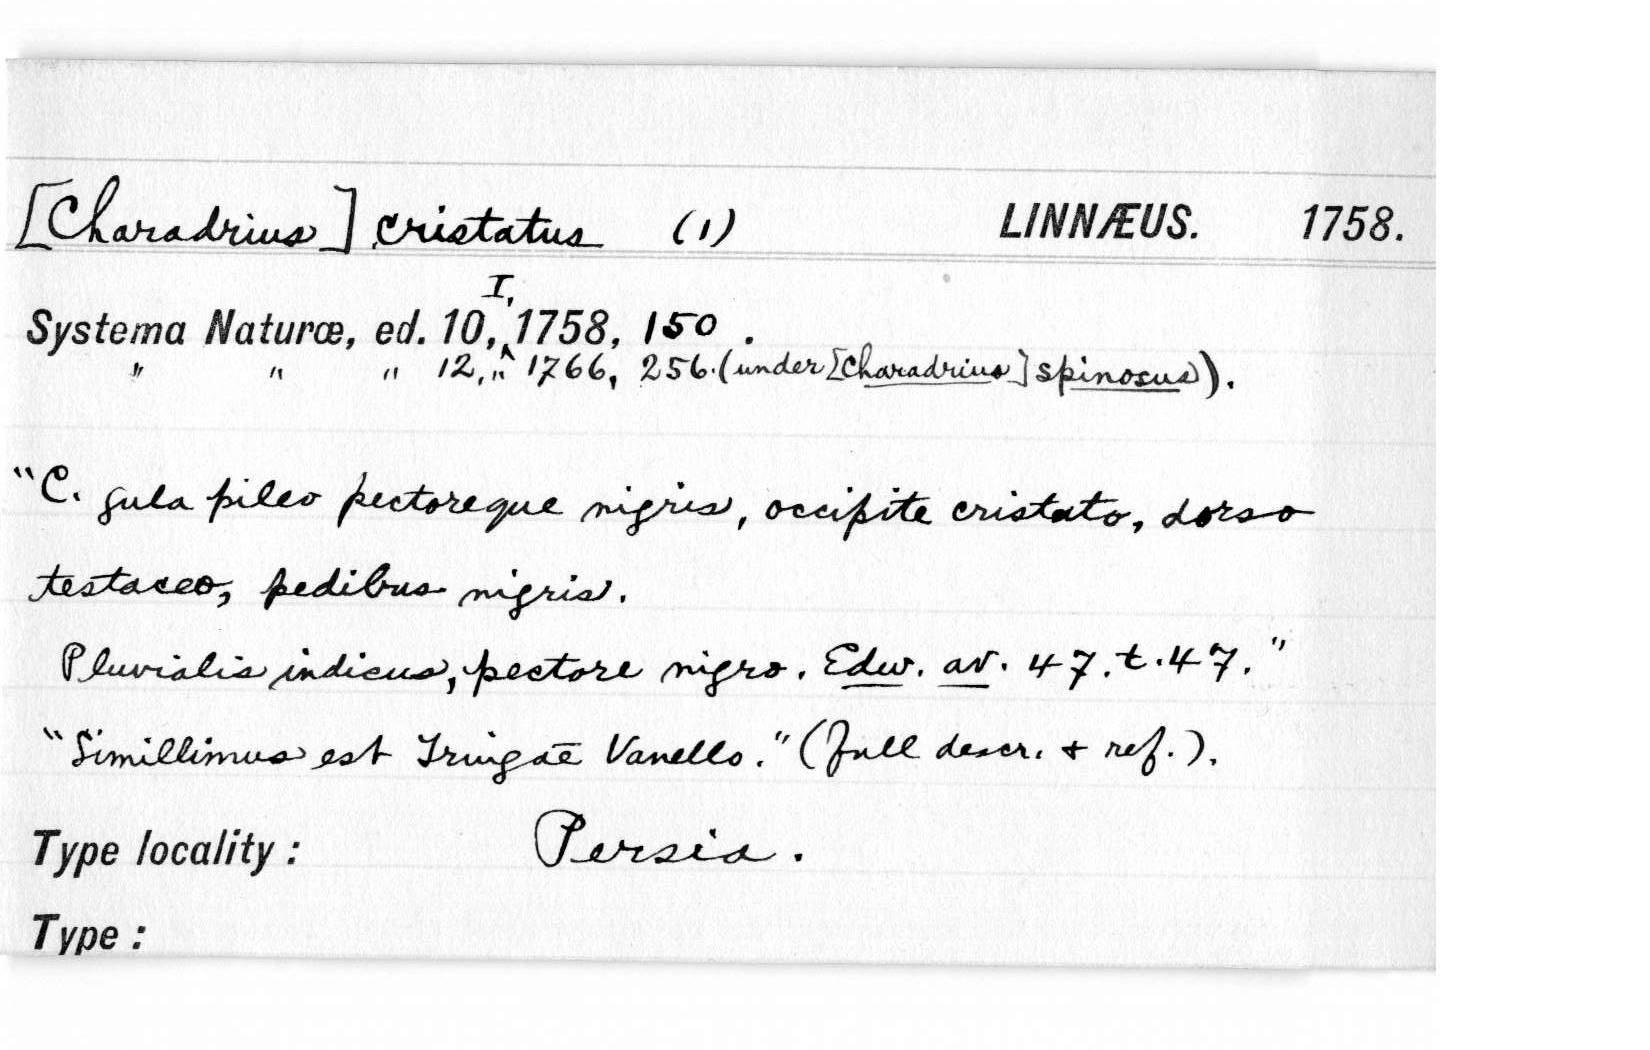 [Charadrius] cristatus (1) LINNÆUS. 1758.
I,
Systema Naturæ, ed. 10,^ 1758, 150 .
" " " 12, " 1766, 256. (under [Charadrius] spinosus).
"C. gula pileo pectoreque nigris, occipite cristato, dorso
testaceo, pedibus nigris.
Pluvialis indicus, pectore nigro. Edw. av. 47. t. 47."
"Simillimus est Tringae Vanello." (full descr. + ref.).
Type locality : Persia .
Type :